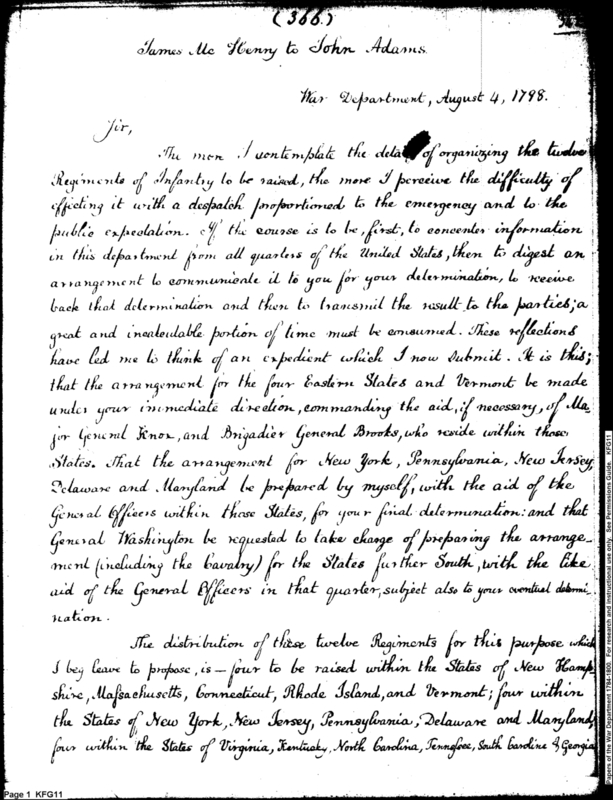 (366.)
James Mc Henry to John Adams.
War Department, August 4, 1798.
Sir,
The more I contemplate the detail of organizing the twelve
Regiments of Infantry to be raised, the more I perceive the difficulty of
effecting it with a despatch proportioned to the emergency and to the
public expectation. If the course is to be, first, to concenter information
in this department from all quarters of the United States, then to digest an
arrangement to communicate it to you for your determination, to receive
back that determination and then to transmit the result to the parties; a
great and incalculable portion of time must be consumed. These reflections
have led me to think of an expedient which I now submit. It is this;
that the arrangement for the four Eastern States and Vermont be made
under your immediate direction, commanding the aid, if necessary, of Ma-
jor General Knox, and Brigadier General Brooks, who reside within those
States. That the arrangement for New York, Pennsylvania, New Jersey,
Delaware and Maryland be prepared by myself, with the aid of the
General Officers within those States, for your final determination: and that
General Washington be requested to take charge of preparing the arrange-
ment (including the Cavalry) for the States further South, with the like
aid of the General Officers in that quarter, subject also to your eventual determi-
nation.
The distribution of these twelve Regiments for this purpose which
I beg leave to propose, is — four to be raised within the States of New Hamp-
shire, Massachusetts, Connecticut, Rhode Island, and Vermont; four within
the States of New York, New Jersey, Pennsylvania, Delaware and Maryland,
four within the States of Virginia, Kentucky, North Carolina, Tennessee, South Carolina & Georgia
Page 1 KFG11
Papers of the War Department 1784-1800. For research and instructional use only. See Permissions Guide. KFG11